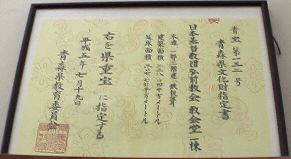 青宝 第一五二号
青森県文化財指定書
日本基督教団弘前教会教会堂 一棟
木造 一部二階建 鉄板葺
建築面積
延床面積
右を県重宝に指定する
平成五年七月十九日
青森県教育委員会